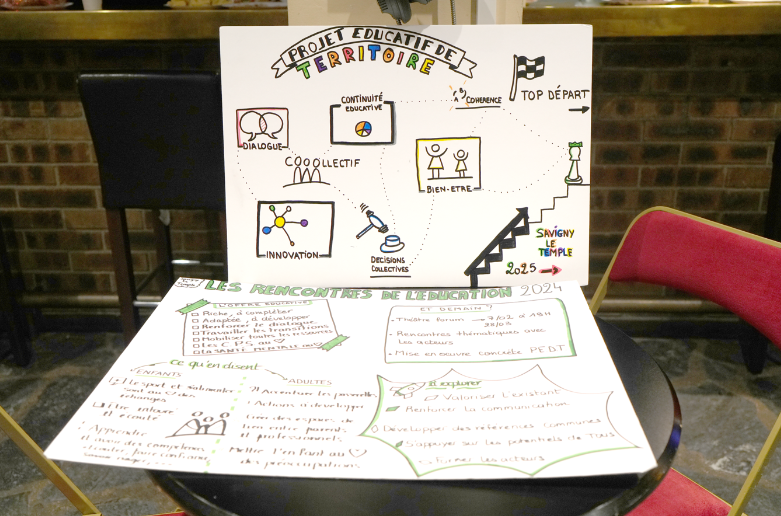 PROJET EDUCATIF DE
TERRITOIRE
CONTINUITÉ
EDUCATIVE
COHERENCE
TOP DÉPART
DIALOGUE
COOOLLECTIF
BIEN-ETRE
INNOVATION
DECISIONS
COLLECTIVES
SAVIGNY
LE
TEMPLE
2025
LES RENCONTRES DE L'EDUCATION 2024
L'OFFRE EDUCATIVE
Riche, à compléter
Adaptée, à développer
Renforcer le dialogue
Travailler les transitions
Mobiliser toutes les ressources
Les CPS au
La SANTÉ MENTALE au
ET DEMAIN ?
Théâtre forum 7/02 à 18H
Rencontres thématiques avec
les acteurs
Mise en oeuvre concrète PEDT
Ce qu'en disent
ENFANTS
Le sport et s'alimenter
sont au des
échanges
Etre entouré
et écouté
Apprendre
ADULTES
Actions à développer
Créer des espaces de
lien entre parents
et professionnels
Mettre l'enfant au
des préoccupations
A explorer
Valoriser l'existant
Renforcer la communication
Développer des références communes
S'appuyer sur les potentiels de Tous
Former les acteurs